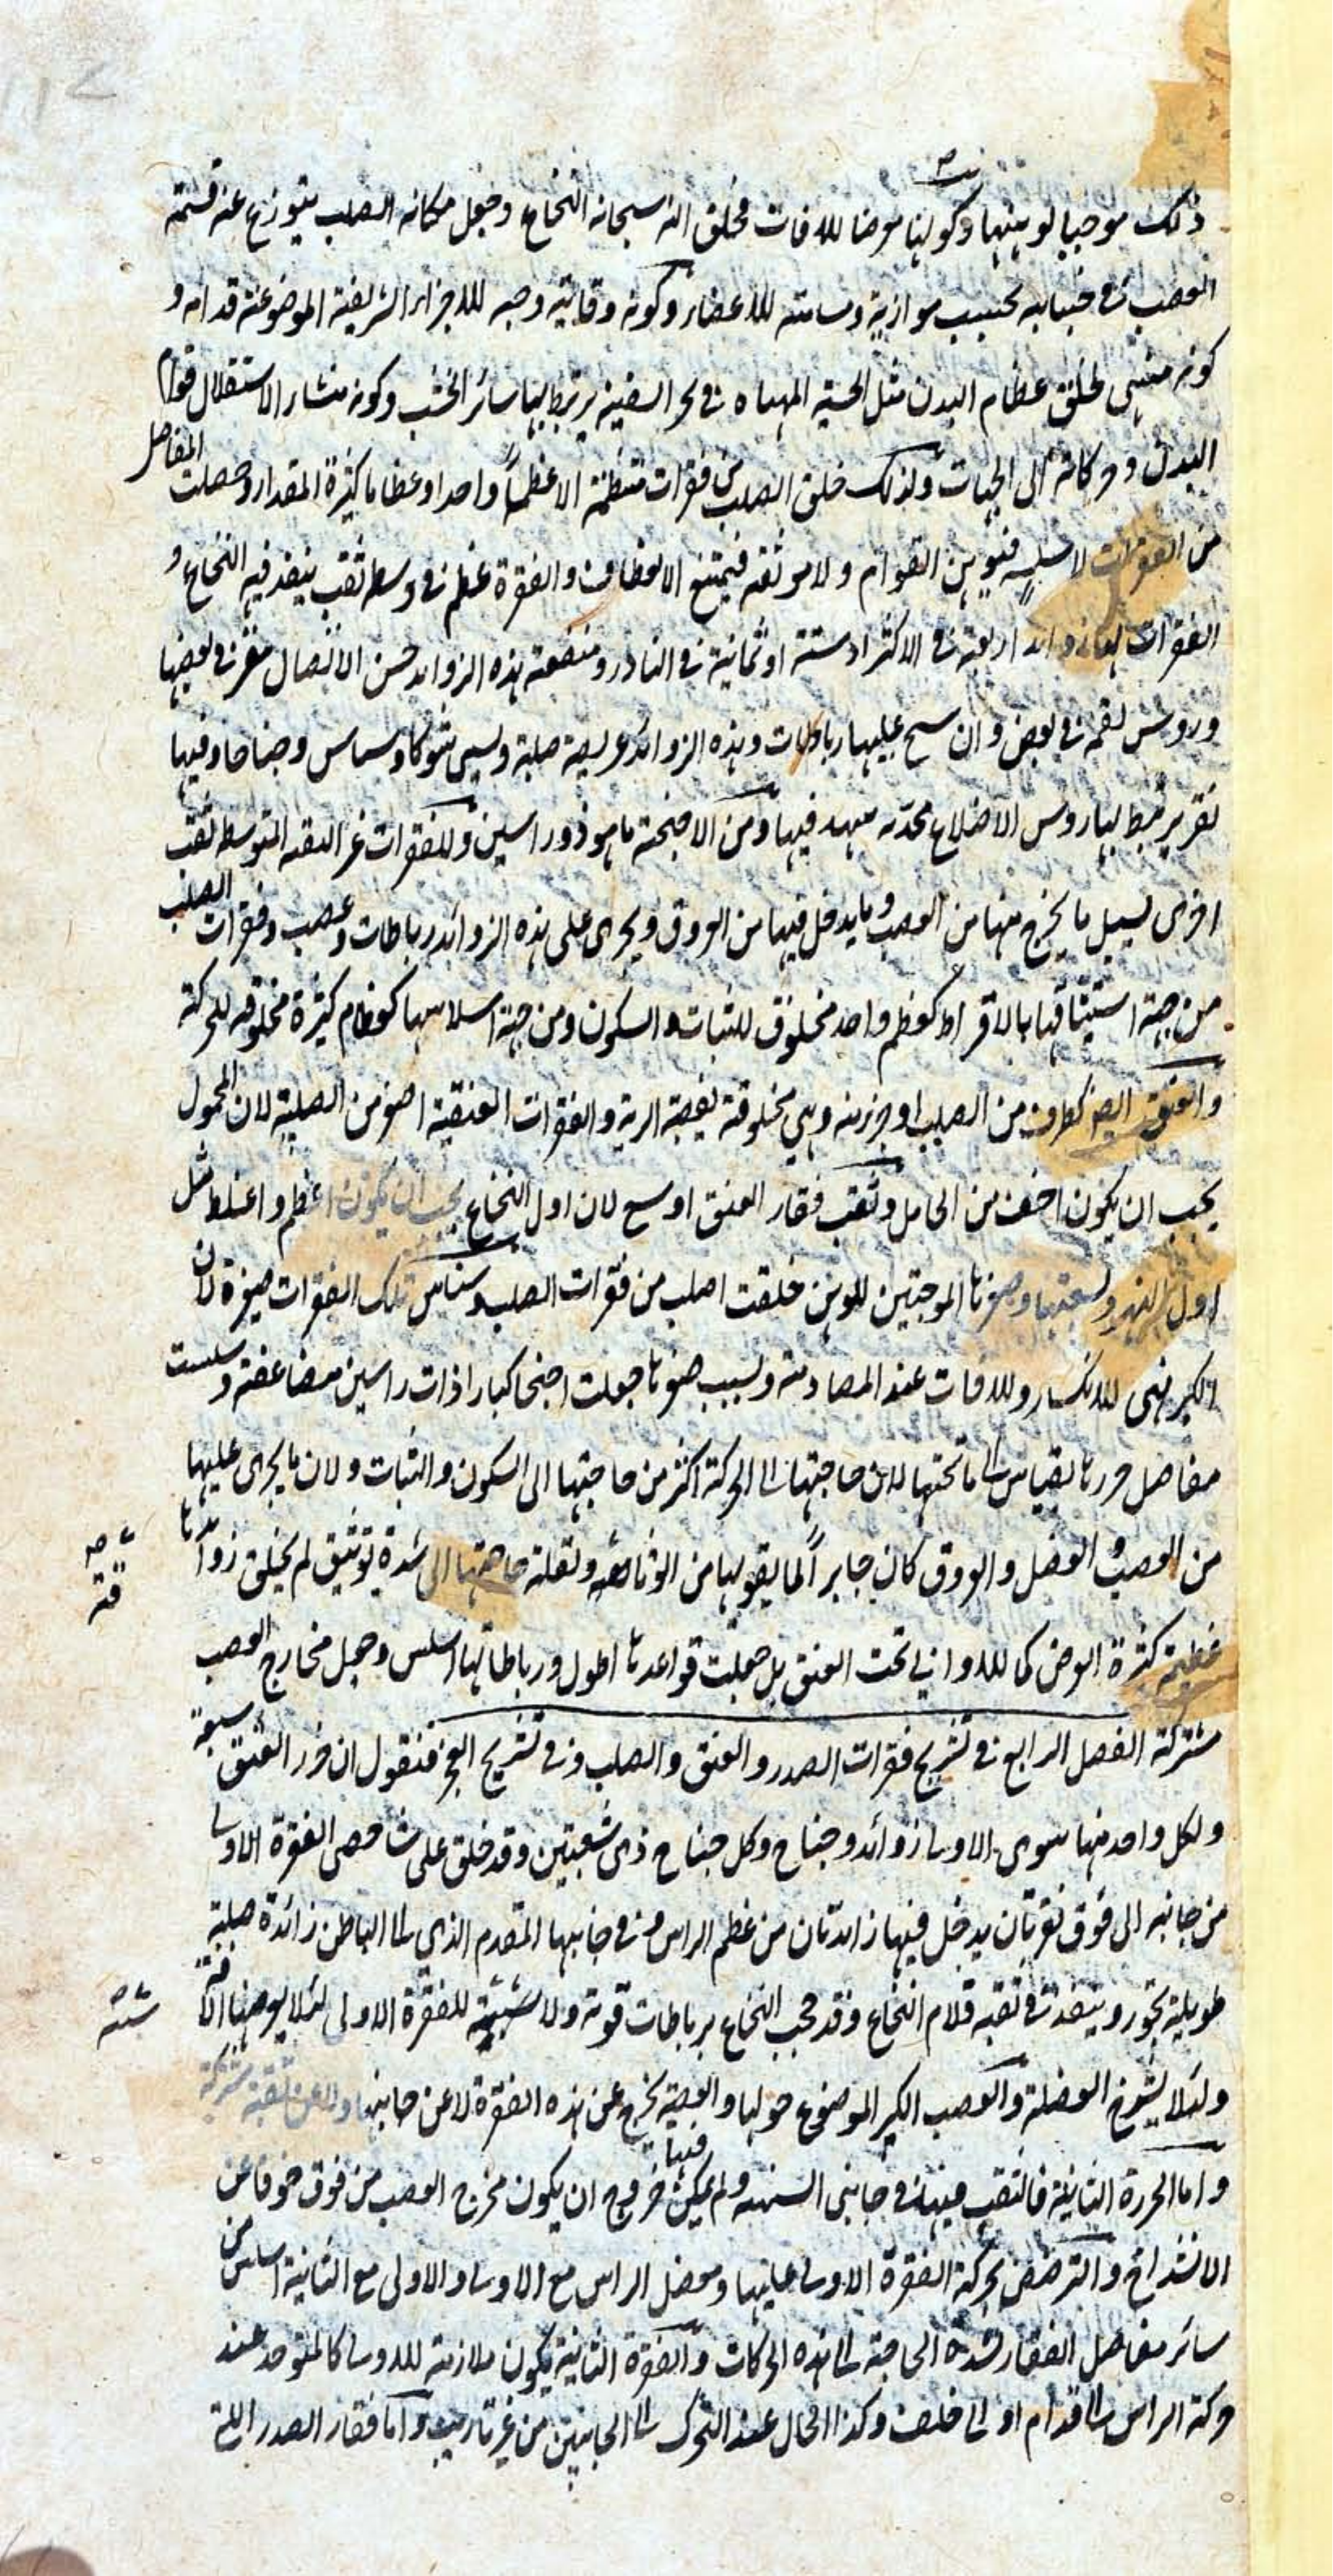 ذلك موجبا لوهنها وكونها معرضا للافات فخلق الله سبحانه النخاع وجعل مكانه الصلب يتوزع عنه قسمة
العصب في جنباته بحسب موازية ومسامته للاعضاء وكونه وقاية وجنه للاجزاء الشريفة الموضوعة قدامه و
كونه مبنى لخلق عظام البدن مثل الخشبة المهياه في نجر السفينة يرتبط بها سائر الخشب وكونه منشاء الاستقلال قوام
البدن وحركاته الى الجهات ولذلك خلق الصلب من فقرات منتظمة لا عظما واحدا وعظاما كثيرة المقدار وحصلت المفاصل
من الفقرات لا سلسه فيوهن القوام ولا موثقه فيمتنع الانعطاف والفقرة عظم في وسطه ثقب ينفذ فيه النخاع و
الفقرات لها زوائد اربعة في الاكثر او ستة او ثمانية في النادر ومنفعة هذه الزوائد حسن الاتصال بنقر في بعضها
وروس لقمه في بعض وان ينسج عليها رباطات وهذه الزوائد عريضة صلبة ويسمى شوكا وسناسن وجناحا وفيها
نقر يرتبط بها روس الاضلاع محدبه فيها ومن الاجنحة ما هو ذو راسين وللفقرات غير الثقبه المتوسطه ثقب
اخرى لسبيل ما يخرج منها من العصب وما يدخل فيها من العروق ويجرى على هذه الزوائد رباطات وعصب وفقرات الصلب
من جهة استيثاقها بالافراط كعظم واحد مخلوق للثبات والسكون ومن جهة اسلاسها كعظام كثيرة مخلوقه للحركة
والعنق ايضا كطرف من الصلب او جزء منه وهي مخلوقة لقصبة الرية والفقرات العنقية اصغر من الصلبية لان المحمول
يجب ان يكون اخف من الحامل وثقب فقار العنق اوسع لان اول النخاع يجب ان يكون اعظم واغلظ مثل
اول النهر ولسعتها وصغرها الموجبتين للوهن خلقت اصلب من فقرات الصلب وسناسن تلك الفقرات صغيرة لان
الكبير تهيى للانكسار وللافات عند المصادمة ولسبب صغرها جعلت اجنحتها كبارا ذات راسين مضاعفة وسلست
مفاصل خرزها بقياس الى ما تحتها لان حاجتها الى الحركة اكثر من حاجتها الى السكون والثبات ولان ما يجرى عليها
من العصب والعضل والعروق كان جابرا لما يفوتها من الوثاقة ولقلة حاجتها الى شدة توثيق لم يخلق زوائدها
عظيمة كثيرة العرض كما للدواني تحت العنق بل جعلت قواعدها اطول ورباطاتها اسلس وجعل مخارج العصب
مشتركة الفصل الرابع في تشريح فقرات الصدر والعنق والصلب وفي تشريح العجز فنقول ان خرز العنق سبعة
ولكل واحد منها سوى الاولى زوائد وجناح وكل جناح ذي شعبتين وقد خلق على خصى الفقرة الاولى
من جانبه الى فوق نقرتان يدخل فيها زائدتان من عظم الراس وفي جانبها المتقدم الذي الى الباطن زائدة صلبة
طويلة تجوز وينفذ في ثقبه قدام النخاع وقد حجب النخاع برباطات قوية ولا سنسنة للفقرة الاولى لئلا يعرضها الافة
ولئلا يشدخ العضلة والعصب الكبير الموضوع حولها والعصبة يخرج عن هذه الفقرة لا عن جانبها ولا عن ثقبة مشتركة
واما الخرزة الثانية فالثقب فيها في جانبي السنسنه ولم يمكن فيها خروج ان يكون مخرج العصب من فوق خوفا عن
الانشداخ والترضض بحركة الفقرة الاولى عليها ومفصل الراس مع الاولى والاولى مع الثانية اسلس من
سائر مفاصل الفقار لشدة الحاجة الى هذه الحركات والفقرة الثانية يكون ملازمة للاولى كالمتوحد عند
حركة الراس الى قدام او الى خلف وكذا الحال عند التحرك الى الجانبين من غير تاريب واما فقار الصدر التي